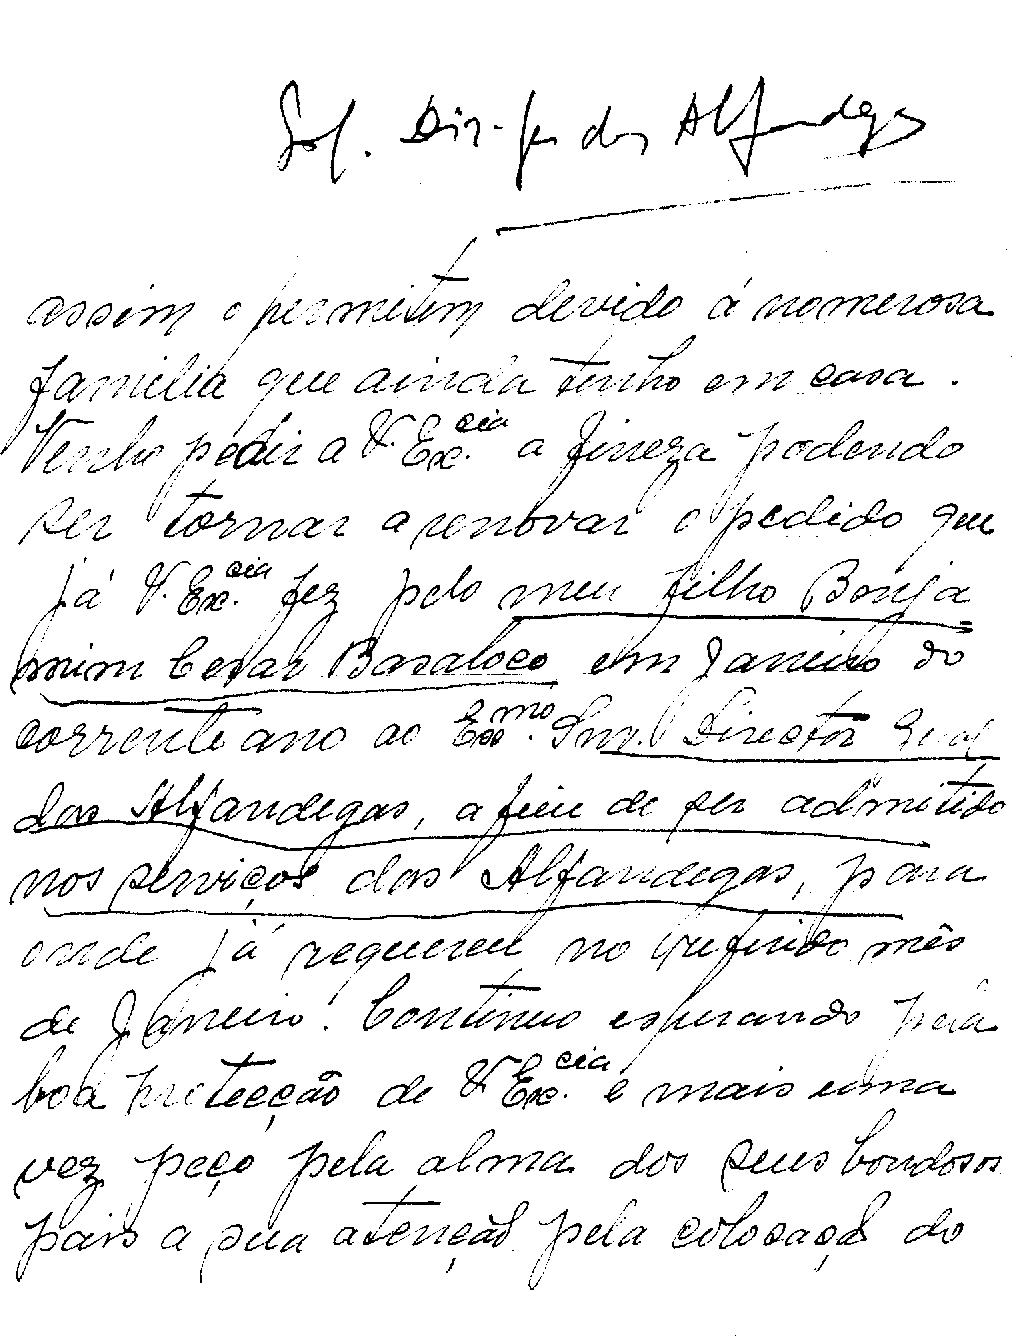 Sol. Dir-ger dos Alfandegas
assim o permitem devido á nomerosa
familia que ainda tenho em casa.
Venho pedir a V. Ex.cia a fineza podendo
ser tornar a renovar o pedido que
já V. Ex.cia fez pelo meu filho Benja
mim Cesar Basaloco em Janeiro do
corrente ano ao Exmo. Snr. Director Geral
das Alfandegas, a fim de ser admitido
nos serviços das Alfandegas, para
onde já requereu no referido mês
de Janeiro. Continuo esperando pela
boa protecção de V. Ex.cia e mais uma
vez peço pela alma dos seus bondosos
pais a sua atenção pela colocação do